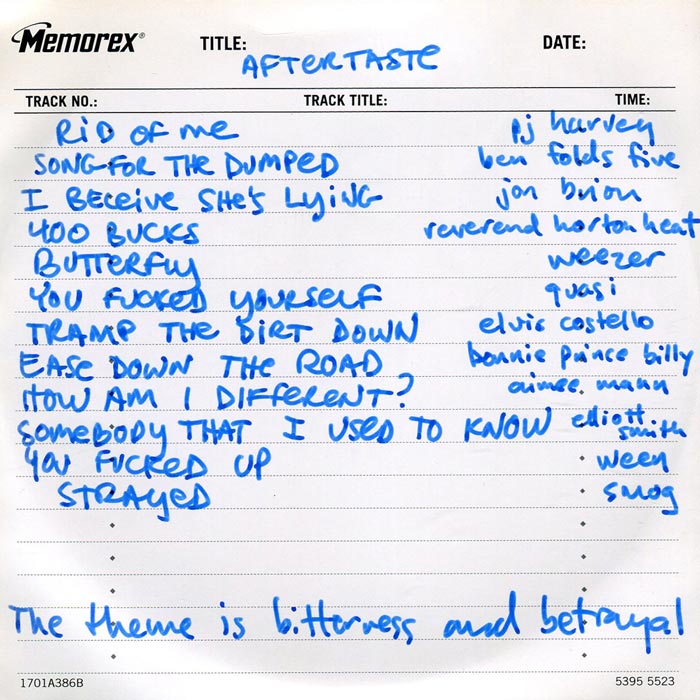 Memorex® TITLE: AFTERTASTE DATE:
TRACK NO.: TRACK TITLE: TIME:
RID OF ME pj harvey
SONG FOR THE DUMPED ben folds five
I BECEIVE SHE'S LYING jon brion
400 BUCKS reverend horton heat
BUTTERFLY weezer
YOU FUCKED YOURSELF quasi
TRAMP THE DIRT DOWN elvis costello
EASE DOWN THE ROAD bonnie prince billy
HOW AM I DIFFERENT? aimee mann
SOMEBODY THAT I USED TO KNOW elliott smith
YOU FUCKED UP ween
STRAYED smog
The theme is bitterness and betrayal
1701A386B 5395 5523